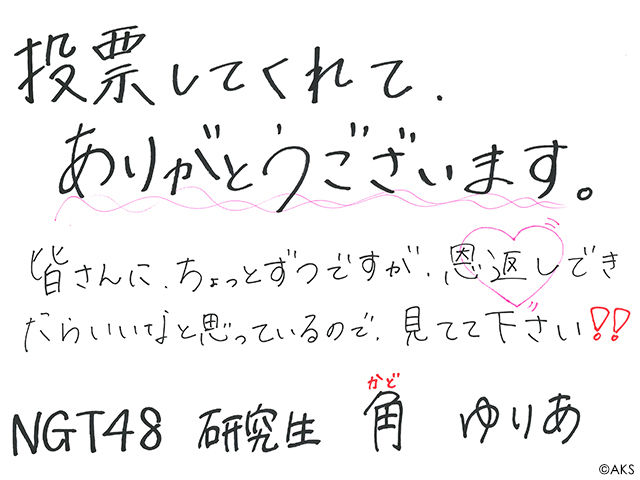 投票してくれて、
ありがとうございます。
皆さんに、ちょっとずつですが、恩返しでき
たらいいなと思っているので、見てて下さい!!
かど
NGT48 研究生 角 ゆりあ
©AKS